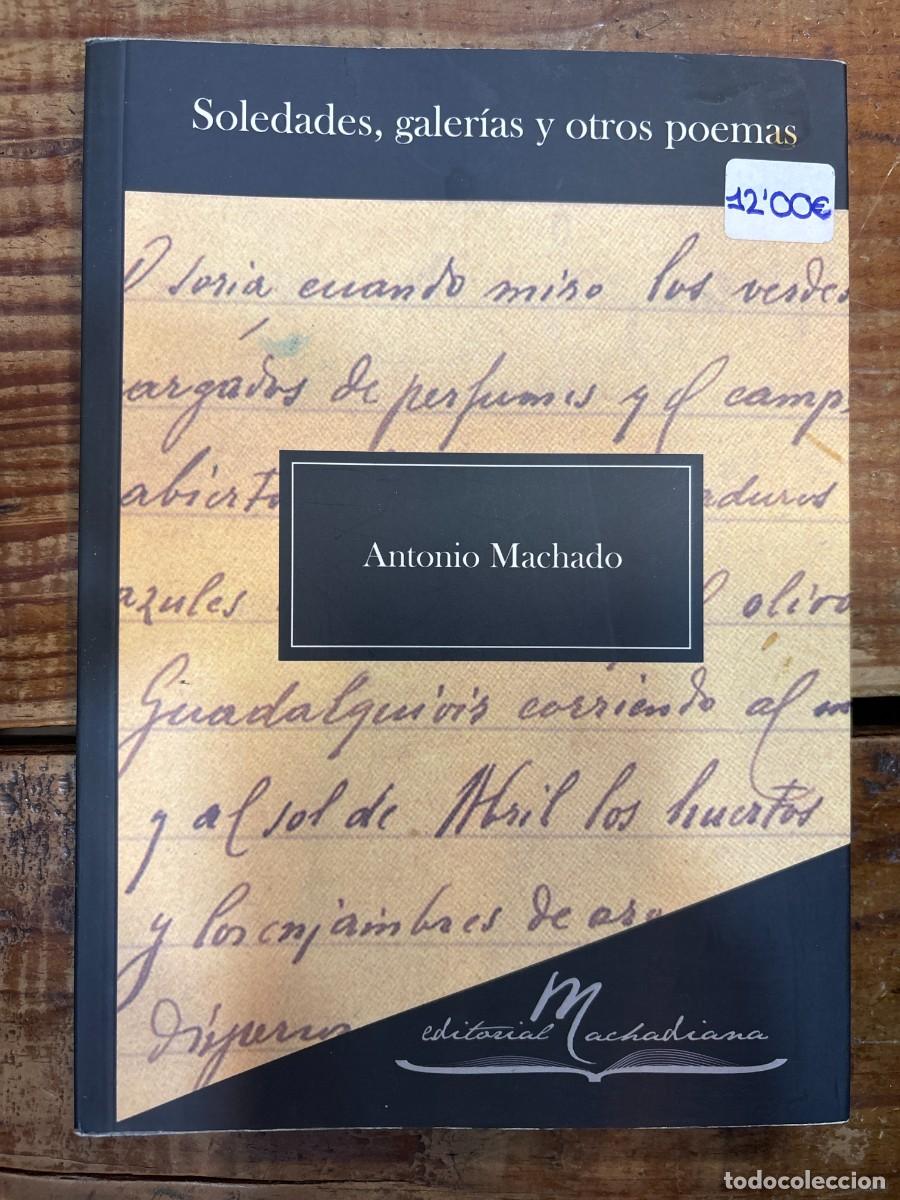 Soledades, galerías y otros poemas
12'00€
O soria cuando miro los verdes
cargados de perfumes y el camp
abierto
aduros
azules
olivo
Antonio Machado
Guadalquivir corriendo al m
y al sol de Abril los huertos
y los enjambres de oro
dispersos
editorial Machadiana
todocoleccion